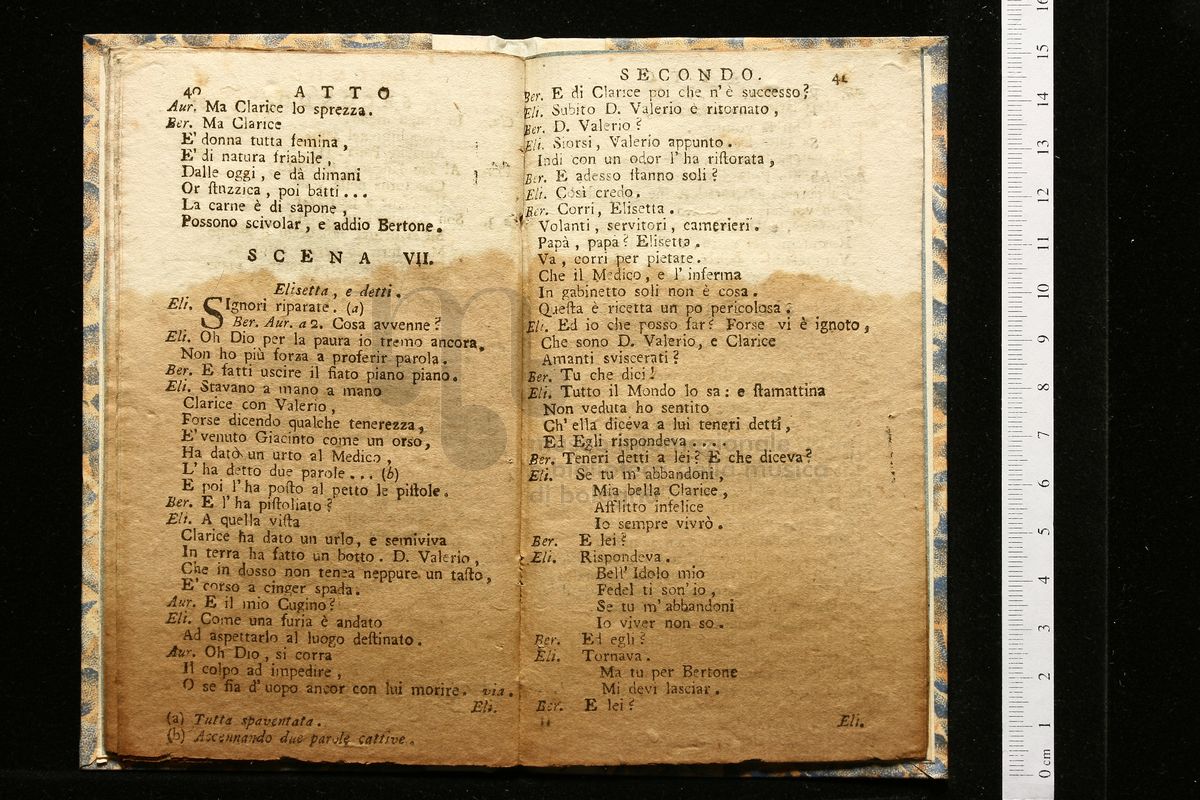 40 ATTO
Aur. Ma Clarice lo sprezza.
Ber. Ma Clarice
E' donna tutta femina,
E' di natura friabile,
Dalle oggi, e dà dimani
Or stuzzica, poi batti...
La carne è di sapone,
Possono scivolar, e addio Bertone.
SCENA VII.
Elisetta, e detti.
Eli. SIgnori riparate. (a)
Ber. Aur. a 2. Cosa avvenne?
Eli. Oh Dio per la paura io tremo ancora,
Non ho più forza a proferir parola.
Ber. E fatti uscire il fiato piano piano.
Eli. Stavano a mano a mano
Clarice con Valerio,
Forse dicendo qualche tenerezza,
E' venuto Giacinto come un orso,
Ha dato un urto al Medico,
L' ha detto due parole... (b)
E poi l' ha posto al petto le pistole.
Ber. E l' ha pistoliato?
Eli. A quella vista
Clarice ha dato un urlo, e semiviva
In terra ha fatto un botto. D. Valerio,
Che in dosso non tenea neppure un tasto,
E' corso a cinger spada.
Aur. E il mio Cugino?
Eli. Come una furia è andato
Ad aspettarlo al luogo destinato.
Aur. Oh Dio, si corra
Il colpo ad impedire,
O se fia d' uopo ancor con lui morire. via.
Eli.
(a) Tutta spaventata.
(b) Accennando due parole cattive.
SECONDO. 41
Ber. E di Clarice poi che n' è successo?
Eli. Subito D. Valerio è ritornato,
Ber. D. Valerio?
Eli. Siorsi, Valerio appunto.
Indi con un odor l' ha ristorata,
Ber. E adesso stanno soli?
Eli. Così credo.
Ber. Corri, Elisetta.
Volanti, servitori, camerieri.
Papà, papa? Elisetta.
Va, corri per pietate.
Che il Medico, e l' inferma
In gabinetto soli non è cosa.
Questa è ricetta un po pericolosa.
Eli. Ed io che posso far? Forse vi è ignoto,
Che sono D. Valerio, e Clarice
Amanti sviscerati?
Ber. Tu che dici!
Eli. Tutto il Mondo lo sa: e stamattina
Non veduta ho sentito
Ch' ella diceva a lui teneri detti,
Ed Egli rispondeva....
Ber. Teneri detti a lei? E che diceva?
Eli. Se tu m' abbandoni,
Mia bella Clarice,
Afflitto infelice
Io sempre vivrò.
Ber. E lei?
Eli. Rispondeva.
Bell' Idolo mio
Fedel ti son' io,
Se tu m' abbandoni
Io viver non so.
Ber. Ed egli?
Eli. Tornava.
Ma tu per Bertone
Mi devi lasciar.
Ber. E lei?
Eli.
16
15
14
13
12
11
10
9
8
7
6
5
4
3
2
1
0 cm